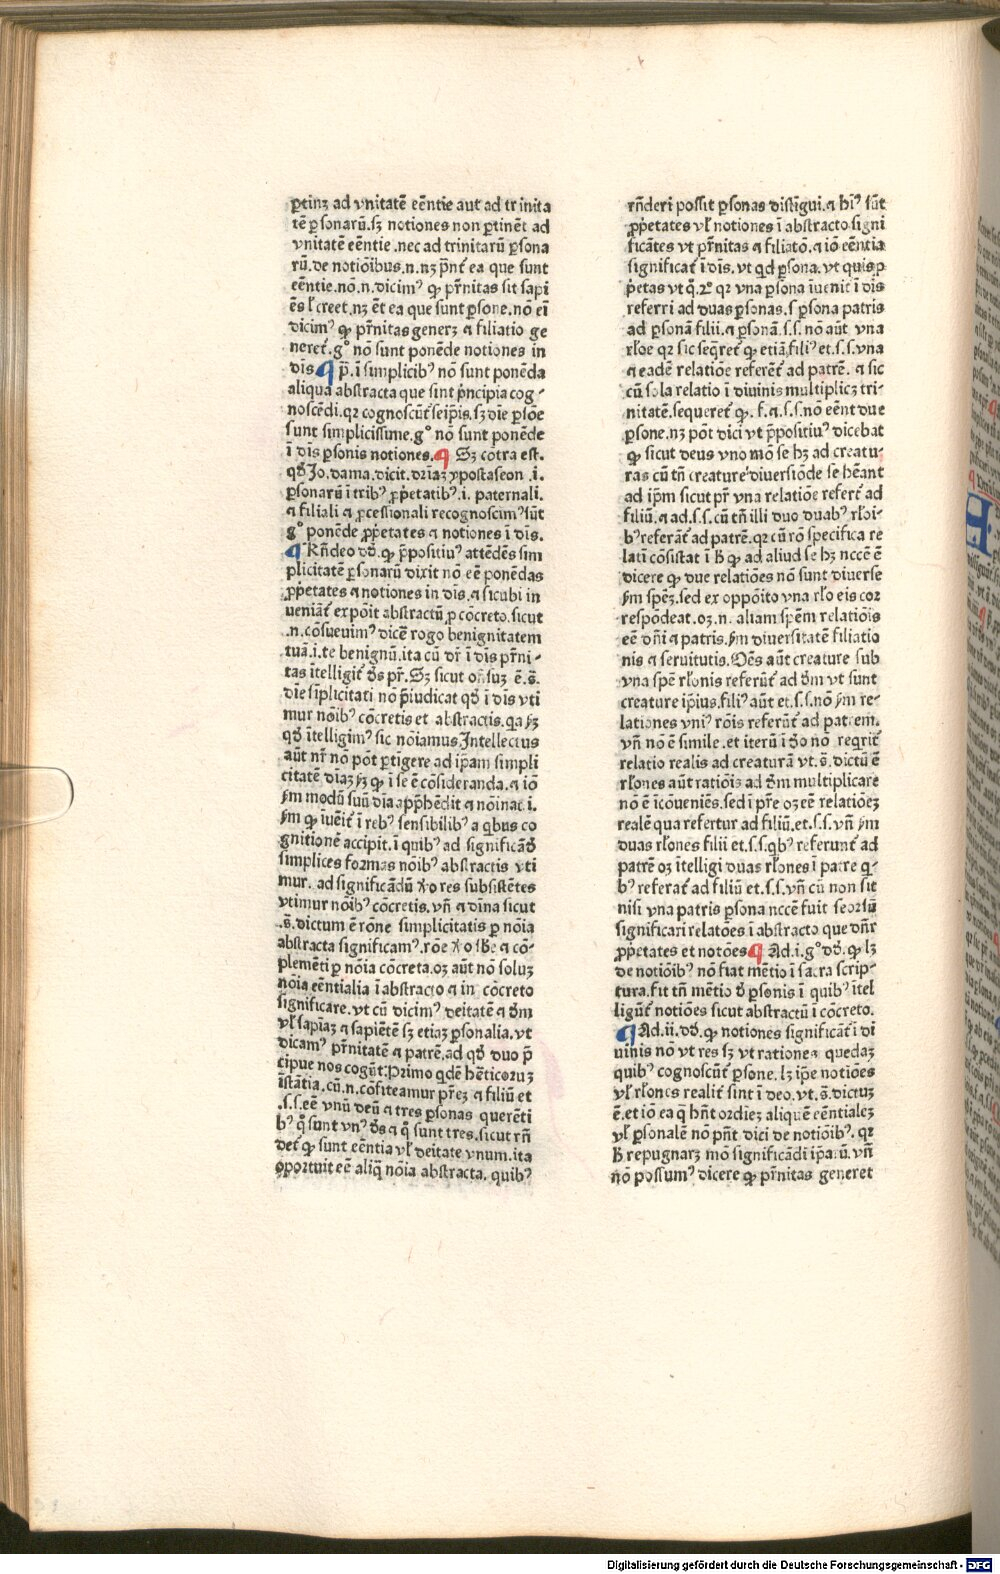 ꝑtinꝫ ad vnitatē eēntie aut ad trinita
tē ꝑsonarū.sꝫ notiones non ꝑtinēt ad
vnitatē eēntie.nec ad trinitatū ꝑsona
rū.de notiōibus.n.nꝫ p̄nt ea que sunt
eēntie.nō.n.dicimꝰ ꝙ pr̄nitas sit sapi
ēs ł creet.nꝫ ēt ea que sunt ꝑsone.nō eī
dicimꝰ ꝙ pr̄nitas generꝫ ⁊ filiatio ge
neret.gͦ nō sunt ponēde notiones in
dīs ¶ p̄.ī simplicibꝰ nō sunt ponēda
aliqua abstracta que sint p̄ncipia cog⸗
noscēdi.qꝛ cognoscūt̄ seip̄is.sꝫ die ꝑsōe
sunt simplicissime.gͦ nō sunt ponēde
ī dīs ꝑsonis notiones.¶ Sꝫ cōtra est.
qđ Jo.dama.dicit.drīaꝫ ypostaseon.i.
ꝑsonarū ī tribꝰ ꝓpetatibꝰ.i. paternali.
⁊ filiali ⁊ ꝓcessionali recognoscimꝰ sūt
gͦ ponēde ꝓpetates ⁊ notiones ī dīs.
¶ Rn̄deo dđ.ꝙ p̄positiuꝰ attēdēs sim
plicitatē ꝑsonarū dixit nō eē ponēdas
ꝓpetates ⁊ notiones in dis.⁊ sicubi in
ueniāt̄ expōit abstractū ꝓ cōcreto.sicut
.n.cōsueuimꝰ dicē rogo benignitatem
tuā.i.te benignū.ita cū dr̄ ī dīs pr̄ni⸗
tas ītelligit̄ đs pr̄.Sꝫ sicut onsuꝫ ē.s̄.
die sīplicitati nō p̄iudicat qđ ī dīs vti
mur nōibꝰ cōcretis et abstractis.qa ẜꝫ
qđ ītelligimꝰ sic nōiamus Intellectus
aūt nr̄ nō pōt ꝑtigere ad ip̄am simpli
citatē diaꝫ ẜꝫ ꝙ ī se ē cōsideranda.⁊ iō
ẜm modū suū dīa app̄hēdit ⁊ nōinat.i.
ẜm ꝙ iuēit̄ ī rebꝰ sensibilibꝰ a qbus co
gnitionē accipit.ī quibꝰ ad significāđ
simplices formas nōibꝰ abstractis vti
mur. ad significādū ꝟo res subsistētes
vtimur nōibꝰ cōcretis.vn̄ ⁊ dīna sicut
.s̄.dictum ē rōne simplicitatis ꝑ nōia
abstracta significamꝰ.rōe ꝟo sb̄e ⁊ cō⸗
plemēti ꝑ nōia cōcreta.oꝫ aūt nō soluꝫ
nōia eēntialia ī abstracto ⁊ in cōcreto
significare.vt cū dicimꝰ deitatē ⁊ đm
vł sapiaꝫ ⁊ sapiētē sꝫ etiaꝫ ꝑsonalia.vt
dicamꝰ pr̄nitatē ⁊ patrē.ad qđ duo p̄
cipue nos cogūt:Primo qdē hēticoruꝫ
īstātia.cū.n.cōfiteamur p̄reꝫ ⁊ filiū et
.s.s.eē vnū deū ⁊ tres ꝑsonas querēti
bꝰ q̄ sunt vnꝰ đs ⁊ q̄ sunt tres.sicut rn̄
det̄ ꝙ sunt eēntia vł deitate vnum.ita
oportuit eē aliq nōia abstracta. quibꝰ
rn̄deri possit ꝑsonas distīgui.⁊ hīꝰ sūt
ꝓpetates vł notiones ī abstracto signi
ficātes vt pr̄nitas ⁊ filiatō.⁊ iō eēntia
significat̄ ī dīs. vt qđ ꝑsona.vt quis ꝓ
petas vt q̄.2ͦ qꝛ vna ꝑsona iuenit̄ ī dīs
referri ad duas ꝑsonas.s ꝑsona patris
ad ꝑsonā filii.⁊ ꝑsonā.s.s. nō aūt vna
rłoe qꝛ sic seqret̄ ꝙ etiā filiꝰ et.s.s.vna
⁊ eadē relatiōe referēt̄ ad patrē. ⁊ sic
cū sola relatio ī diuinis multiplicꝫ tri⸗
nitatē.sequeret̄ ꝙ. f.⁊.s.s.nō eēnt due
ꝑsone.nꝫ pōt dici vt p̄positiuꝰ dicebat
ꝙ sicut deus vno mō se hꝫ ad creatu⸗
ras cū tn̄ creature diuersiōde se hēant
ad ip̄m sicut pr̄ vna relatiōe refert̄ ad
filiū.⁊ ad.s.s.cū tn̄ illi duo duabꝰ rłoi⸗
bꝰ referāt̄ ad patrē.qꝛ cū rō specifica re
latī cōsistat ī h̄ ꝙ ad aliud se hꝫ nccē ē
dicere ꝙ due relatiōes nō sunt diuerse
ẜm speꝫ.sed ex oppōito vna rło eis cor
respōdeat.oꝫ.n. aliam spēm relatiōis
eē dn̄i ⁊ patris.ẜm diuersitatē filiatio
nis ⁊ seruitutis.Oēs aūt creature sub
vna spē rłonis referūt̄ ad đm vt sunt
creature ip̄ius.filiꝰ aūt et.s.s.nō ẜm re⸗
lationes vniꝰ rōis referūt̄ ad patrem.
vn̄ nō ē simile.et iterū ī đo nō reqrit̄
relatio realis ad creaturā vt.s̄.dictū ē
rłones aūt ratiōis ad đm multiplicare
nō ē īcōueniēs.sed ī pr̄e oꝫ eē relatiōeꝫ
realē qua refertur ad filiū.et.s.s.vn̄ ẜm
duas rłones filii et.s.s.qbꝰ referunt̄ ad
patrē oꝫ ītelligi duas rłones ī patre q⸗
bꝰ referat̄ ad filiū et.s.s.vn̄ cū non sit
nisi vna patris ꝑsona nccē fuit seorsū
significari relatōes ī abstracto que dn̄r
ꝓpetates et notōes ¶ Ad.i.gͦ dđ. ꝙ lꝫ
de notiōibꝰ nō fiat mētio ī sacra scrip⸗
tura.fit tn̄ mētio đ ꝑsonis ī quibꝰ ītel
ligūt̄ notiōes sicut abstractū ī cōcreto.
¶ Ad.ii.dđ.ꝙ notiones significāt̄ ī di
uinis nō vt res sꝫ vt rationes quedaꝫ
quibꝰ cognoscūt̄ ꝑsone. lꝫ ip̄e notiōes
vł rłones realit̄ sint ī deo. vt.s̄.dictuꝫ
ē.et iō ea q̄ hn̄t ordieꝫ aliquē eēntialeꝫ
vł ꝑsonalē nō pn̄t dici de notiōibꝰ. qꝛ
h̄ repugnarꝫ mō significādi ip̄aꝝ.vn̄
nō possumꝰ dicere ꝙ pr̄nitas generet
Digitalisierung gefördert durch die Deutsche Forschungsgemeinschaft - DFG